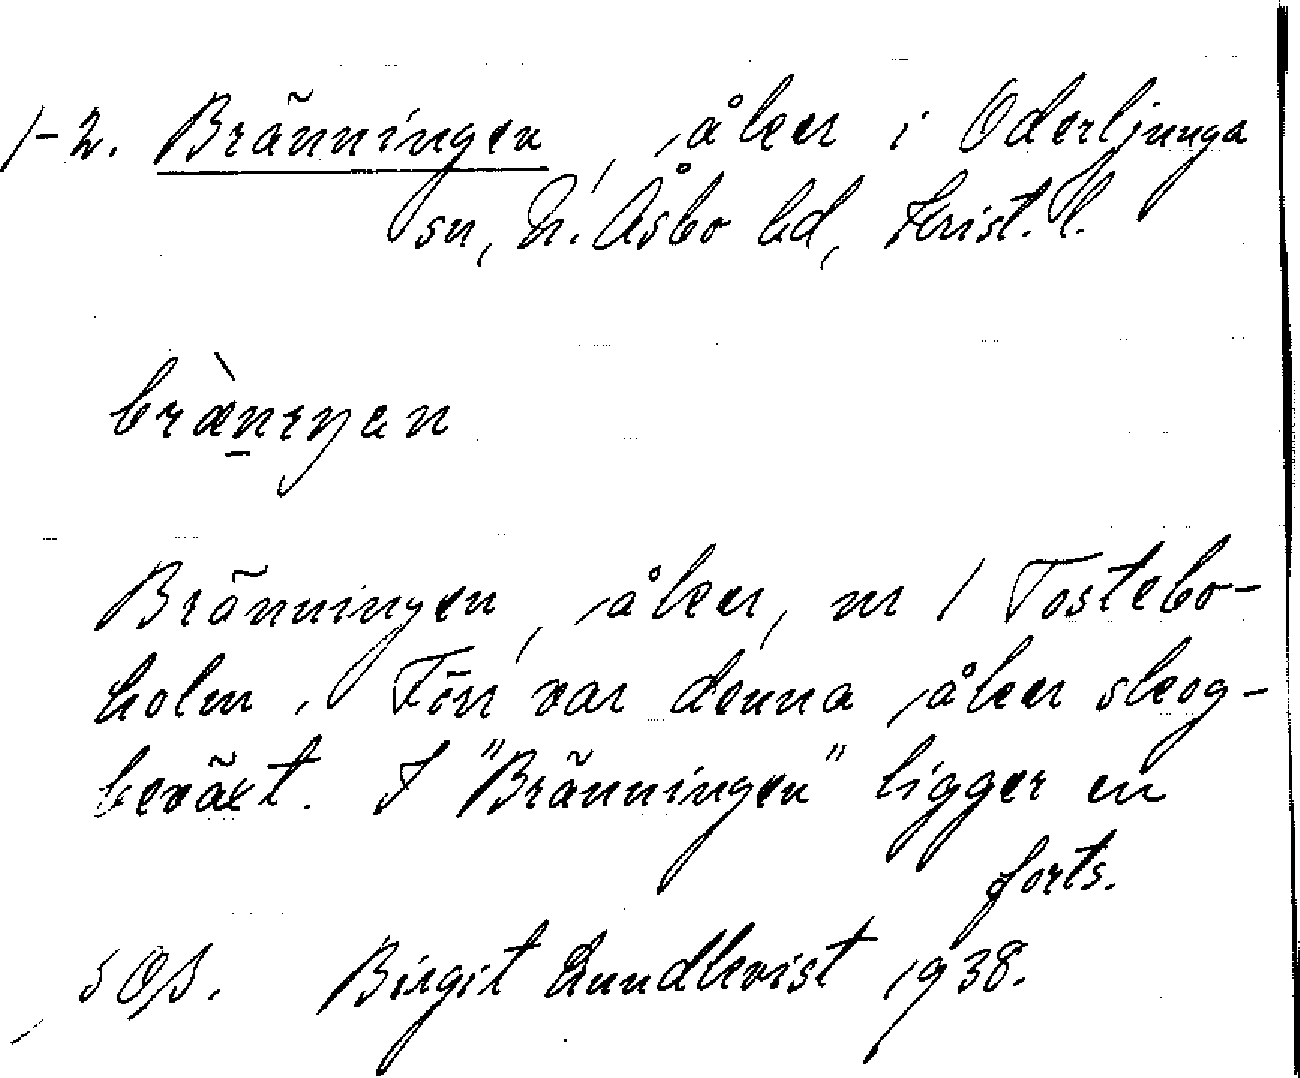 1-2. Bränningen, åker i Oderljunga
sn, N. Åsbo hd, Krist. l.
bræ̀nıŋən
Bränningen, åker, nr 1 Tostebo-
holm. Förr var denna åker skog-
beväxt. I "Bränningen" ligger en
forts.
SOS. Birgit Lundkvist 1938.